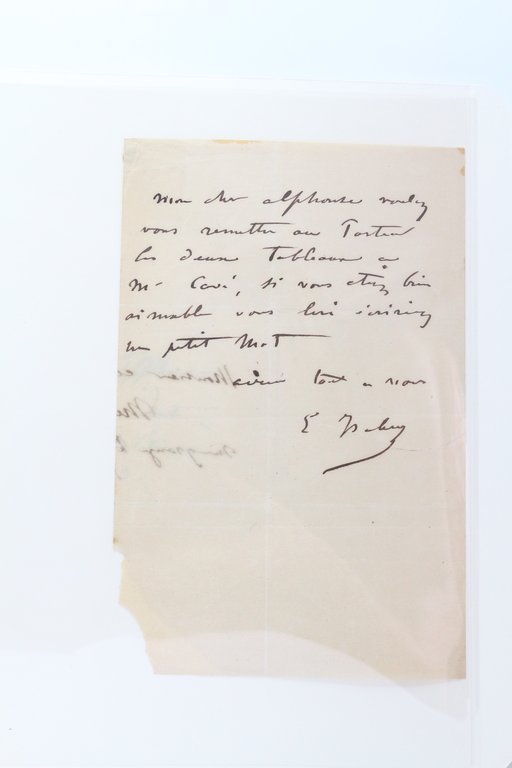 mon cher alphonse voulez
vous remettre au Porteur
les deux Tableaux a
Mr Cavé, si vous étiez bien
aimable vous lui écririez
un petit mot
adieu tout a vous
E Isabey